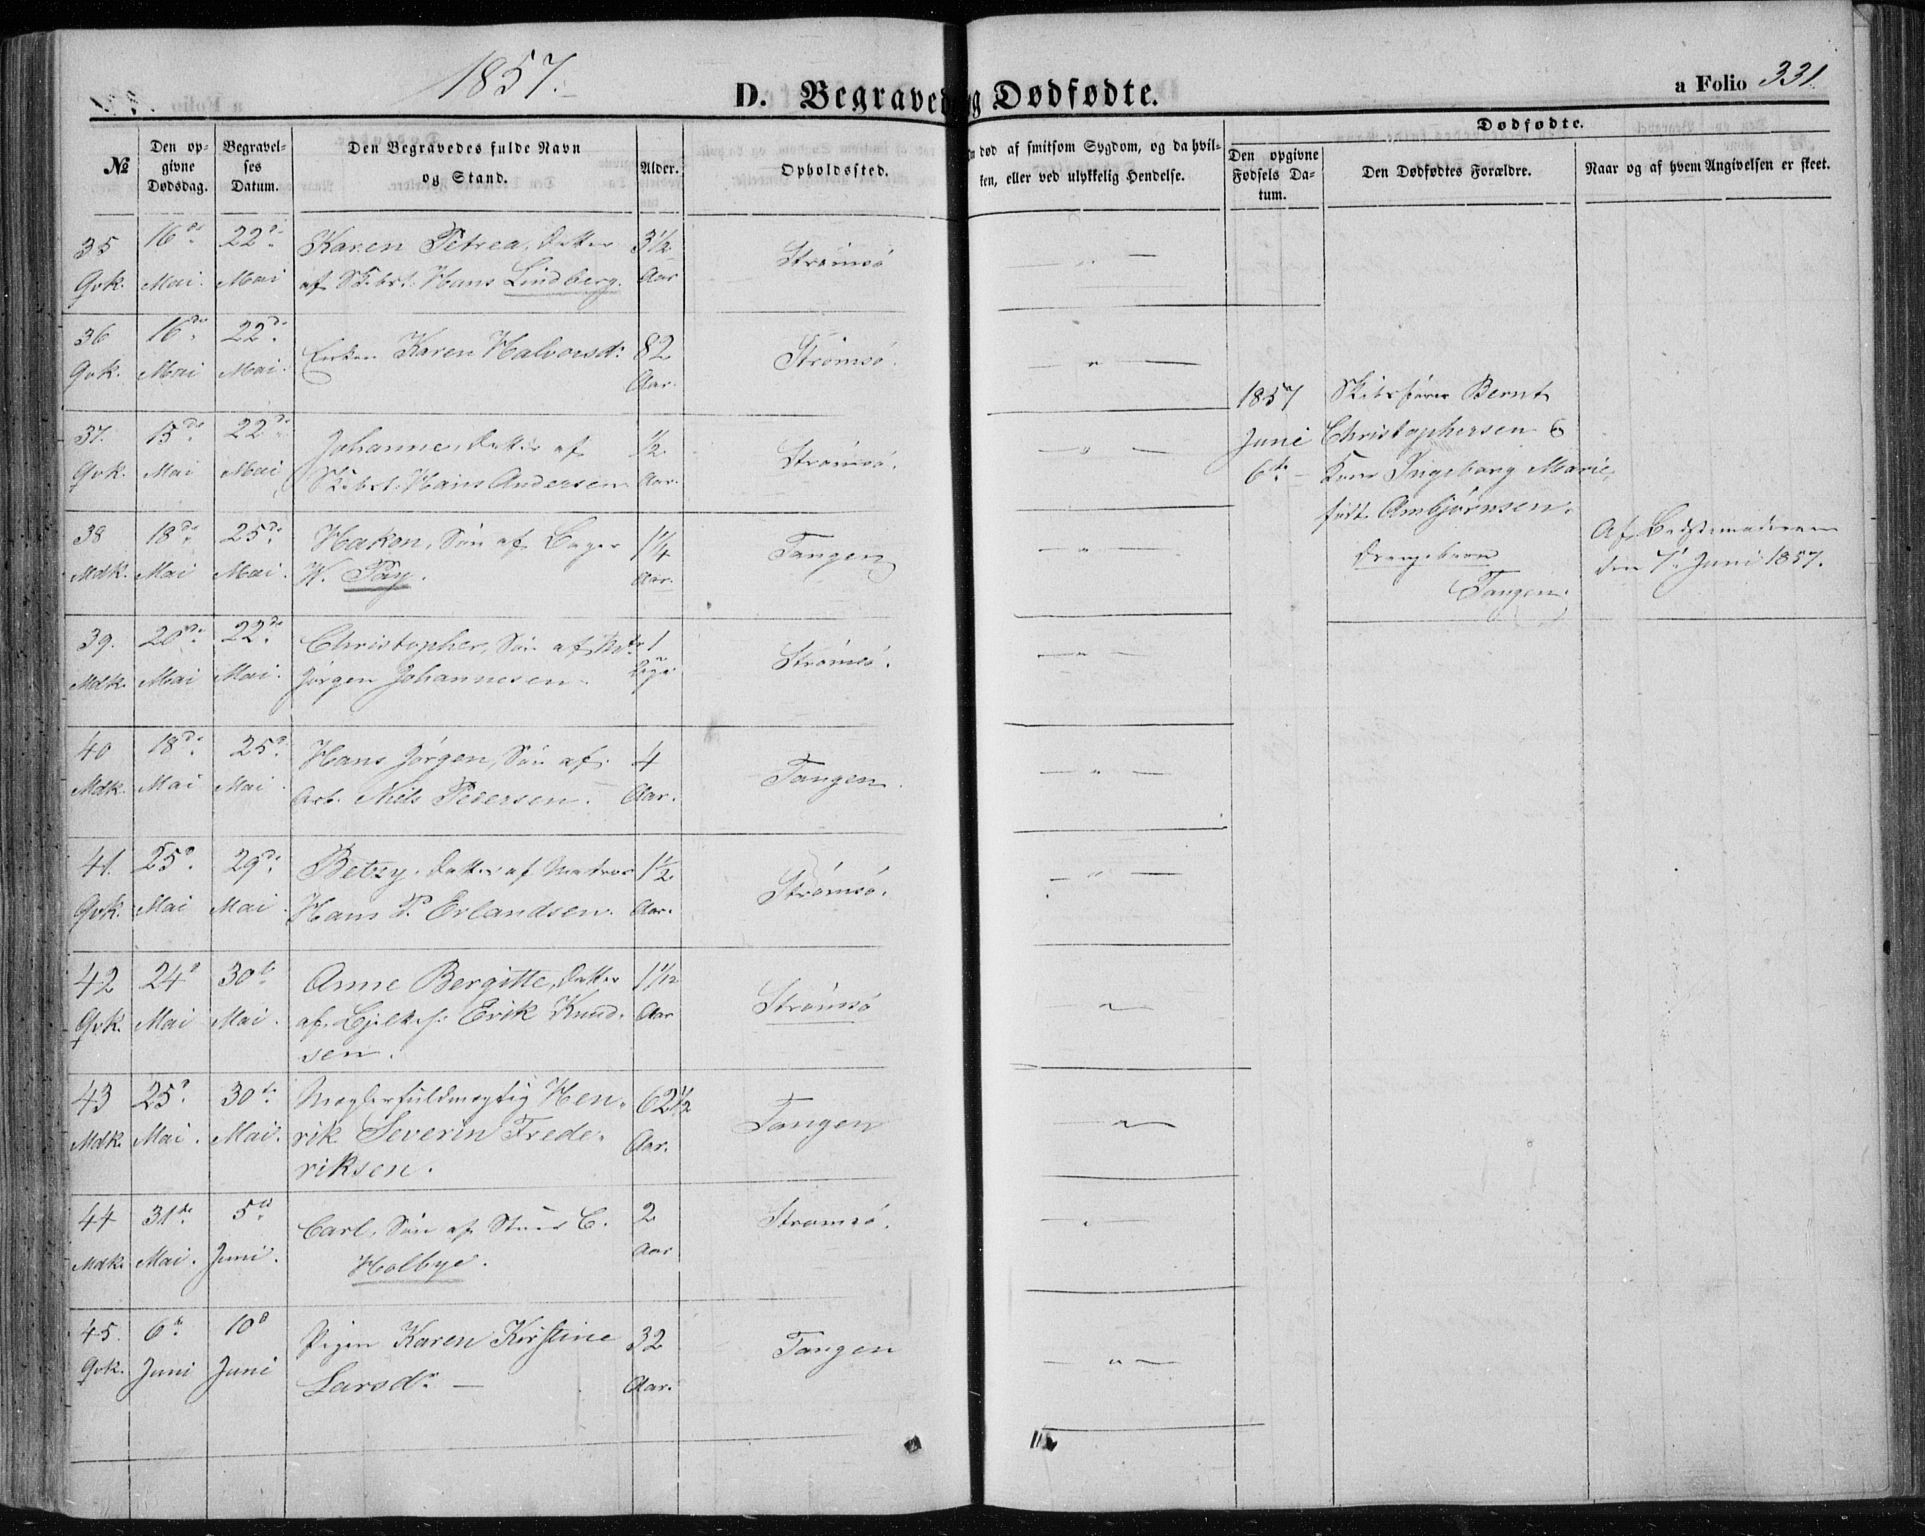 1857.
D. Begravede og Dødfødte.
a Folio 331.
№
Den opgivne Dødsdag.
Begravelses Datum.
Den Begravedes fulde Navn og Stand.
Alder.
Opholdssted.
død af smitsom Sygdom, og da hvilken, eller ved ulykkelig Hendelse.
Dødfødte.
Den opgivne Fødsels Datum.
Den Dødfødtes Forældre.
Naar og af hvem Angivelsen er skeet.
35 16de 22de Karen Petrea, Datter 3½ Strømsö
Qvk. Mai. Mai af Skibst. Hans Lindberg. Aar
36 16de 22de Enken Karen Halvorsd: 82 Strømsö.
Qvk. Mai Mai. Aar.
37. 15de 22de Johanne, Datter af ½ Strømsö.
Qvk. Mai Mai Skibst. Hans Andersen Aar.
38 18de 25de Hakon, Sön af Bager 1¼ Tangen
Mdk. Mai Mai. W. Pay. Aar.
39. 20de 22de Christopher, Sön af 1 Strømsö.
Mdk. Mai Mai. Jörgen Johannesen Dage
40 18de 25de Hans Jørgen, Sön af 4 Tangen.
Mdk. Mai Mai. Arb. Niels Pedersen. Aar.
41. 25de 29de Betzy, Datter af Matros 1½ Strømsö.
Qvk. Mai Mai Hans P. Erlandsen. Aar.
42 24de 30te Anne Bergitte, Datter 1 1/12 Strømsö
Qvk. Mai Mai. af Erik Knud- Aar
sen.
43 25de 30te Mæglerfuldmægtig Hen- 62½ Tangen
Mdk. Mai. Mai. rik Severin Frede- Aar.
riksen.
44 31te 5te Carl, Sön af C. 2 Strømsö.
Mdk. Mai. Juni. Holbye. Aar
45. 6te 10de Pigen Karen Kirstine 32 Tangen
Qvk. Juni Juni Larsdr. Aar.
1857 Skibsfører Bernt
Juni Christophersen &
6te Kone Ingeborg Marie,
født Ambjørnsen.
Drengebarn
Tangen.
Af Bedstemoderen
den 7de Juni 1857.